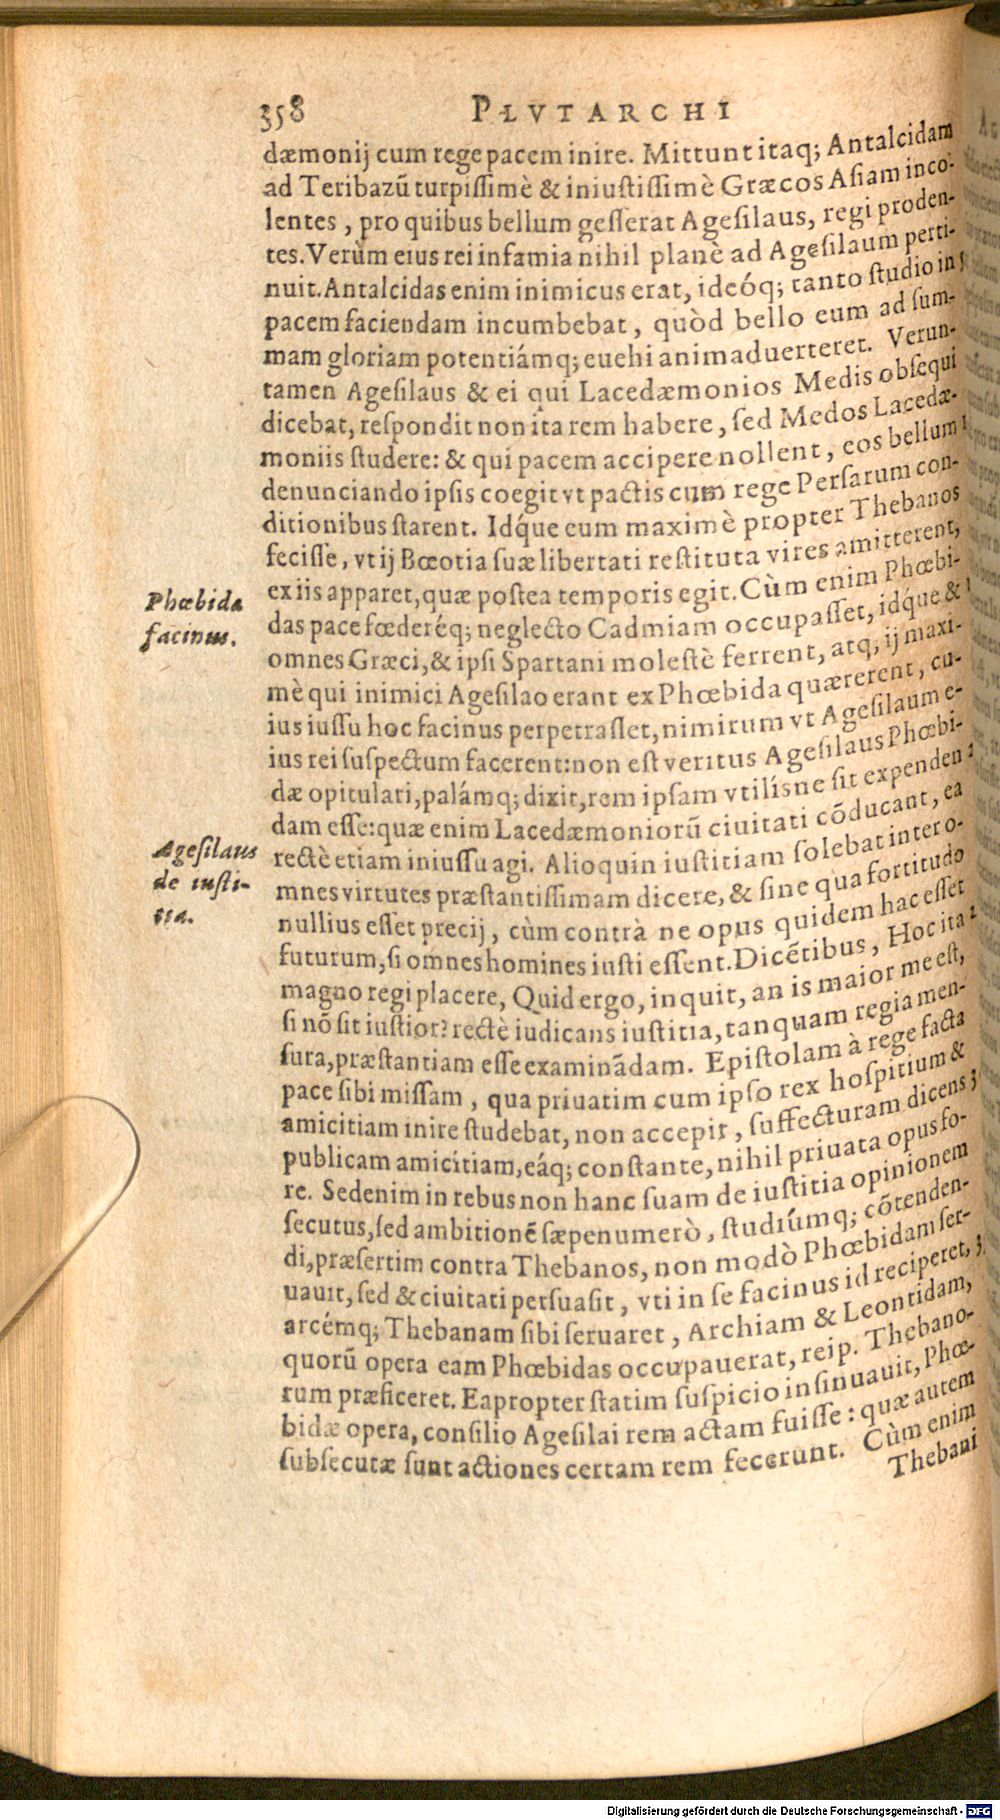 358 PLVTARCHI
dæmonij cum rege pacem inire. Mittunt itaq; Antalcidam
ad Teribazū turpissimè & iniustissimè Græcos Asiam inco-
lentes, pro quibus bellum gesserat Agesilaus, regi proden-
tes. Verùm eius rei infamia nihil planè ad Agesilaum perti-
nuit. Antalcidas enim inimicus erat, ideóq; tanto studio in
pacem faciendam incumbebat, quòd bello eum ad sum-
mam gloriam potentiámq; euehi animaduerteret. Verun-
tamen Agesilaus & ei qui Lacedæmonios Medis obsequi
dicebat, respondit non ita rem habere, sed Medos Lacedæ-
moniis studere: & qui pacem accipere nollent, eos bellum
denunciando ipsis coegit vt pactis cum rege Persarum con-
ditionibus starent. Idq́ue eum maximè propter Thebanos
fecisse, vtij Bœotia suæ libertati restituta vires amitterent,
Phœbidæ
ex iis apparet, quæ postea temporis egit. Cùm enim Phœbi-
facinus.
das pace fœderéq; neglecto Cadmiam occupasset, idq́ue &
omnes Græci, & ipsi Spartani molestè ferrent, atq; ij maxi-
mè qui inimici Agesilao erant ex Phœbida quærerent, cu-
ius iussu hoc facinus perpetrasset, nimirum vt Agesilaum e-
ius rei suspectum facerent: non est veritus Agesilaus Phœbi-
dæ opitulari, palámq; dixit, rem ipsam vtilísne sit expenden
dam esse: quæ enim Lacedæmoniorū ciuitati cōducant, ea
Agesilaus
rectè etiam iniussu agi. Alioquin iustitiam solebat inter o-
de iusti-
mnes virtutes præstantissimam dicere, & sine qua fortitudo
tia.
nullius esset precij, cùm contrà ne opus quidem hac esset
futurum, si omnes homines iusti essent. Dicētibus, Hoc ita
magno regi placere, Quid ergo, inquit, an is maior me est,
si nō sit iustior? rectè iudicans iustitia, tanquam regia men-
sura, præstantiam esse examinādam. Epistolam à rege facta
pace sibi missam, qua priuatim cum ipso rex hospitium &
amicitiam inire studebat, non accepit, suffecturam dicens
publicam amicitiam, eáq; constante, nihil priuata opus fo-
re. Sed enim in rebus non hanc suam de iustitia opinionem
secutus, sed ambitionē sæpenumerò, studiúmq; cōtenden-
di, præsertim contra Thebanos, non modò Phœbidam ser-
uauit, sed & ciuitati persuasit, vti in se facinus id reciperet,
arcémq; Thebanam sibi seruaret, Archiam & Leontidam,
quorū opera eam Phœbidas occupauerat, reip. Thebano-
rum præficeret. Eapropter statim suspicio insinuauit, Phœ-
bidæ opera, consilio Agesilai rem actam fuisse: quæ autem
subsecutæ sunt actiones certam rem fecerunt. Cùm enim
Thebani
Digitalisierung gefördert durch die Deutsche Forschungsgemeinschaft - DFG